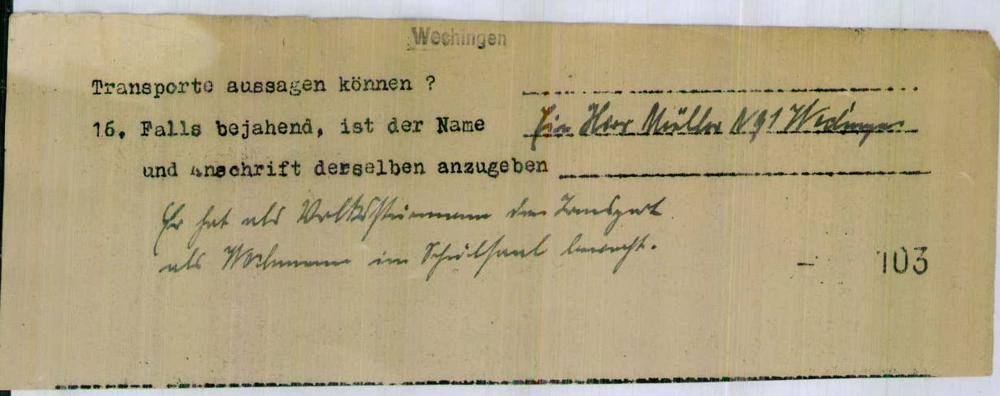 Wechingen
Transporte aussagen können ?
16. Falls bejahend, ist der Name Ein Herr Müller N 91 Wechingen
und Anschrift derselben anzugeben
Er hat als Volkssturmmann den Transport
als Wachmann im Schulsaal bewacht.
- 103